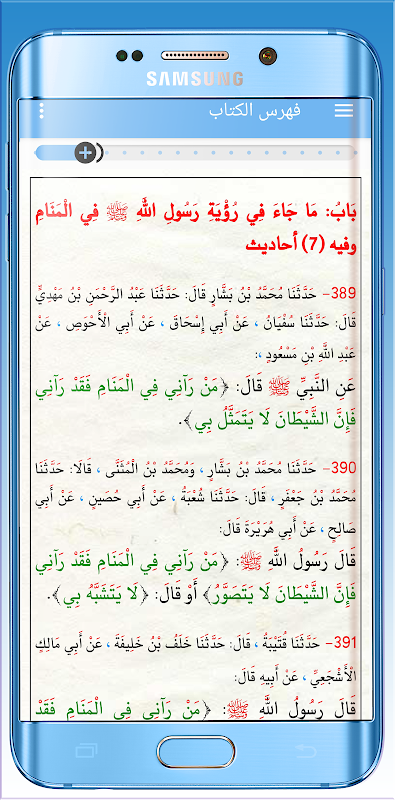 SAMSUNG
فهرس الكتاب
بَابُ: مَا جَاءَ فِي رُؤْيَةِ رَسُولِ اللَّهِ ﷺ فِي الْمَنَامِ
وفيه (7) أحاديث
389- حَدَّثَنَا مُحَمَّدُ بْنُ بَشَّارٍ قَالَ: حَدَّثَنَا عَبْدُ الرَّحْمَنِ بْنُ مَهْدِيٍّ
قَالَ: حَدَّثَنَا سُفْيَانُ ، عَنْ أَبِي إِسْحَاقَ ، عَنْ أَبِي الْأَحْوَصِ ، عَنْ
عَبْدِ اللَّهِ بْنِ مَسْعُودٍ ،:
عَنِ النَّبِيِّ ﷺ قَالَ: ﴿مَنْ رَآنِي فِي الْمَنَامِ فَقَدْ رَآنِي
فَإِنَّ الشَّيْطَانَ لَا يَتَمَثَّلُ بِي﴾.
390- حَدَّثَنَا مُحَمَّدُ بْنُ بَشَّارٍ ، وَمُحَمَّدُ بْنُ الْمُثَنَّى ، قَالَا: حَدَّثَنَا
مُحَمَّدُ بْنُ جَعْفَرٍ ، قَالَ: حَدَّثَنَا شُعْبَةُ ، عَنْ أَبِي حُصَيْنٍ ، عَنْ أَبِي
صَالِحٍ ، عَنْ أَبِي هُرَيْرَةَ قَالَ:
قَالَ رَسُولُ اللَّهِ ﷺ: ﴿مَنْ رَآنِي فِي الْمَنَامِ فَقَدْ رَآنِي
فَإِنَّ الشَّيْطَانَ لَا يَتَصَوَّرُ﴾ أَوْ قَالَ: ﴿لَا يَتَشَبَّهُ بِي﴾.
391- حَدَّثَنَا قُتَيْبَةُ ، قَالَ: حَدَّثَنَا خَلَفُ بْنُ خَلِيفَةَ ، عَنْ أَبِي مَالِكٍ
الْأَشْجَعِيِّ ، عَنْ أَبِيهِ قَالَ:
قَالَ رَسُولُ اللَّهِ ﷺ: ﴿مَنْ رَآنِي فِي الْمَنَامِ فَقَدْ